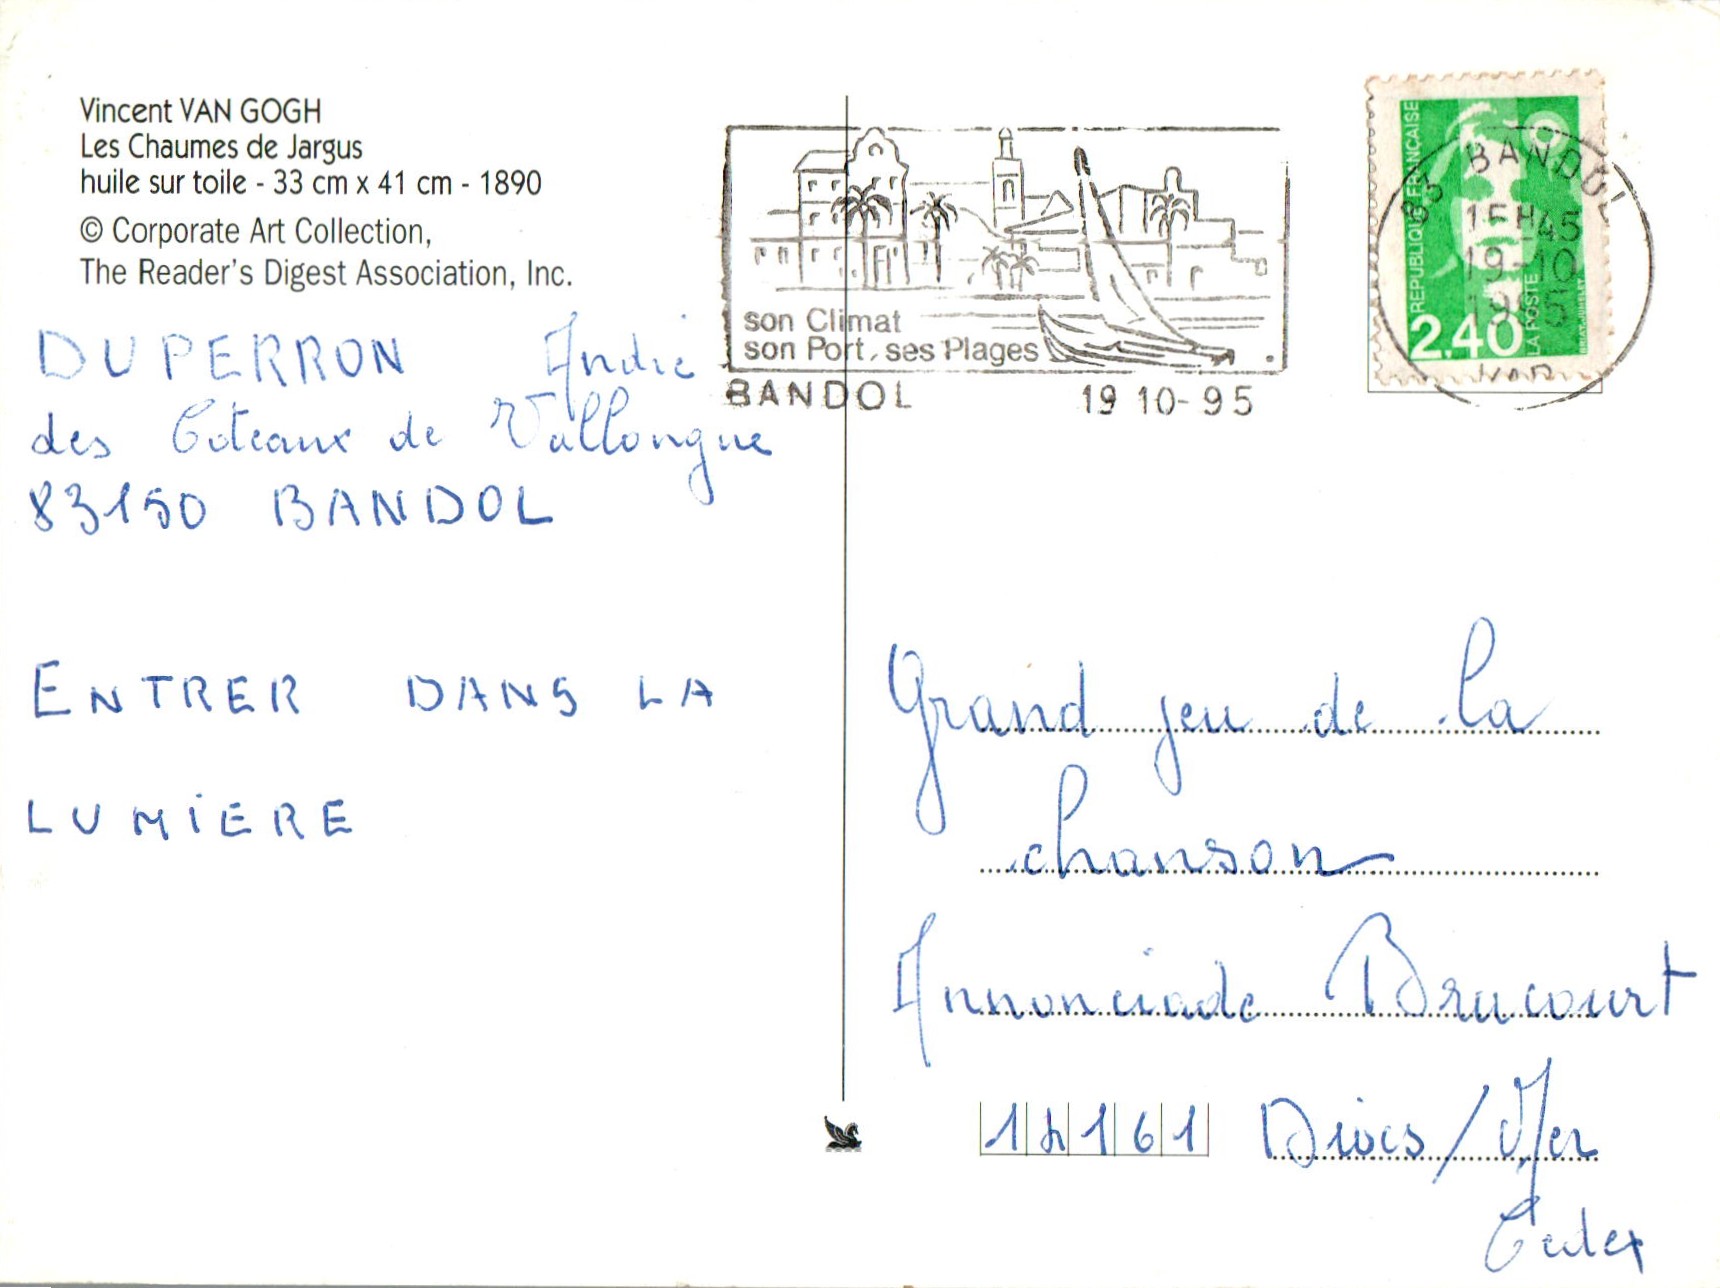 Vincent VAN GOGH
Les Chaumes de Jargus
huile sur toile - 33 cm x 41 cm - 1890
© Corporate Art Collection,
The Reader's Digest Association, Inc.
DUPERRON André
des Coteaux de Vallongue
83150 BANDOL
ENTRER DANS LA
LUMIERE
son Climat
son Port, ses Plages
BANDOL 19 10-95
RÉPUBLIQUE FRANÇAISE
2,40
LA POSTE
83 BANDOL
15H45
19-10
1995
VAR
Grand jeu de la
chanson
Annonciade Brucourt
14161 Dives/Mer
Cedex